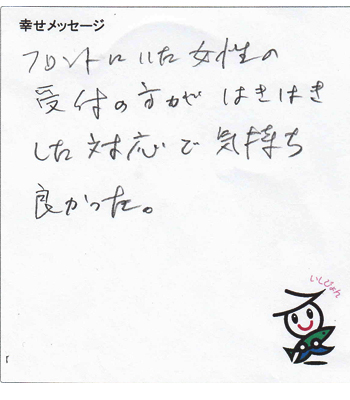 幸せメッセージ
フロントにいた女性の
受付の方がはきはき
した対応で気持ち
良かった。
いしぴょん